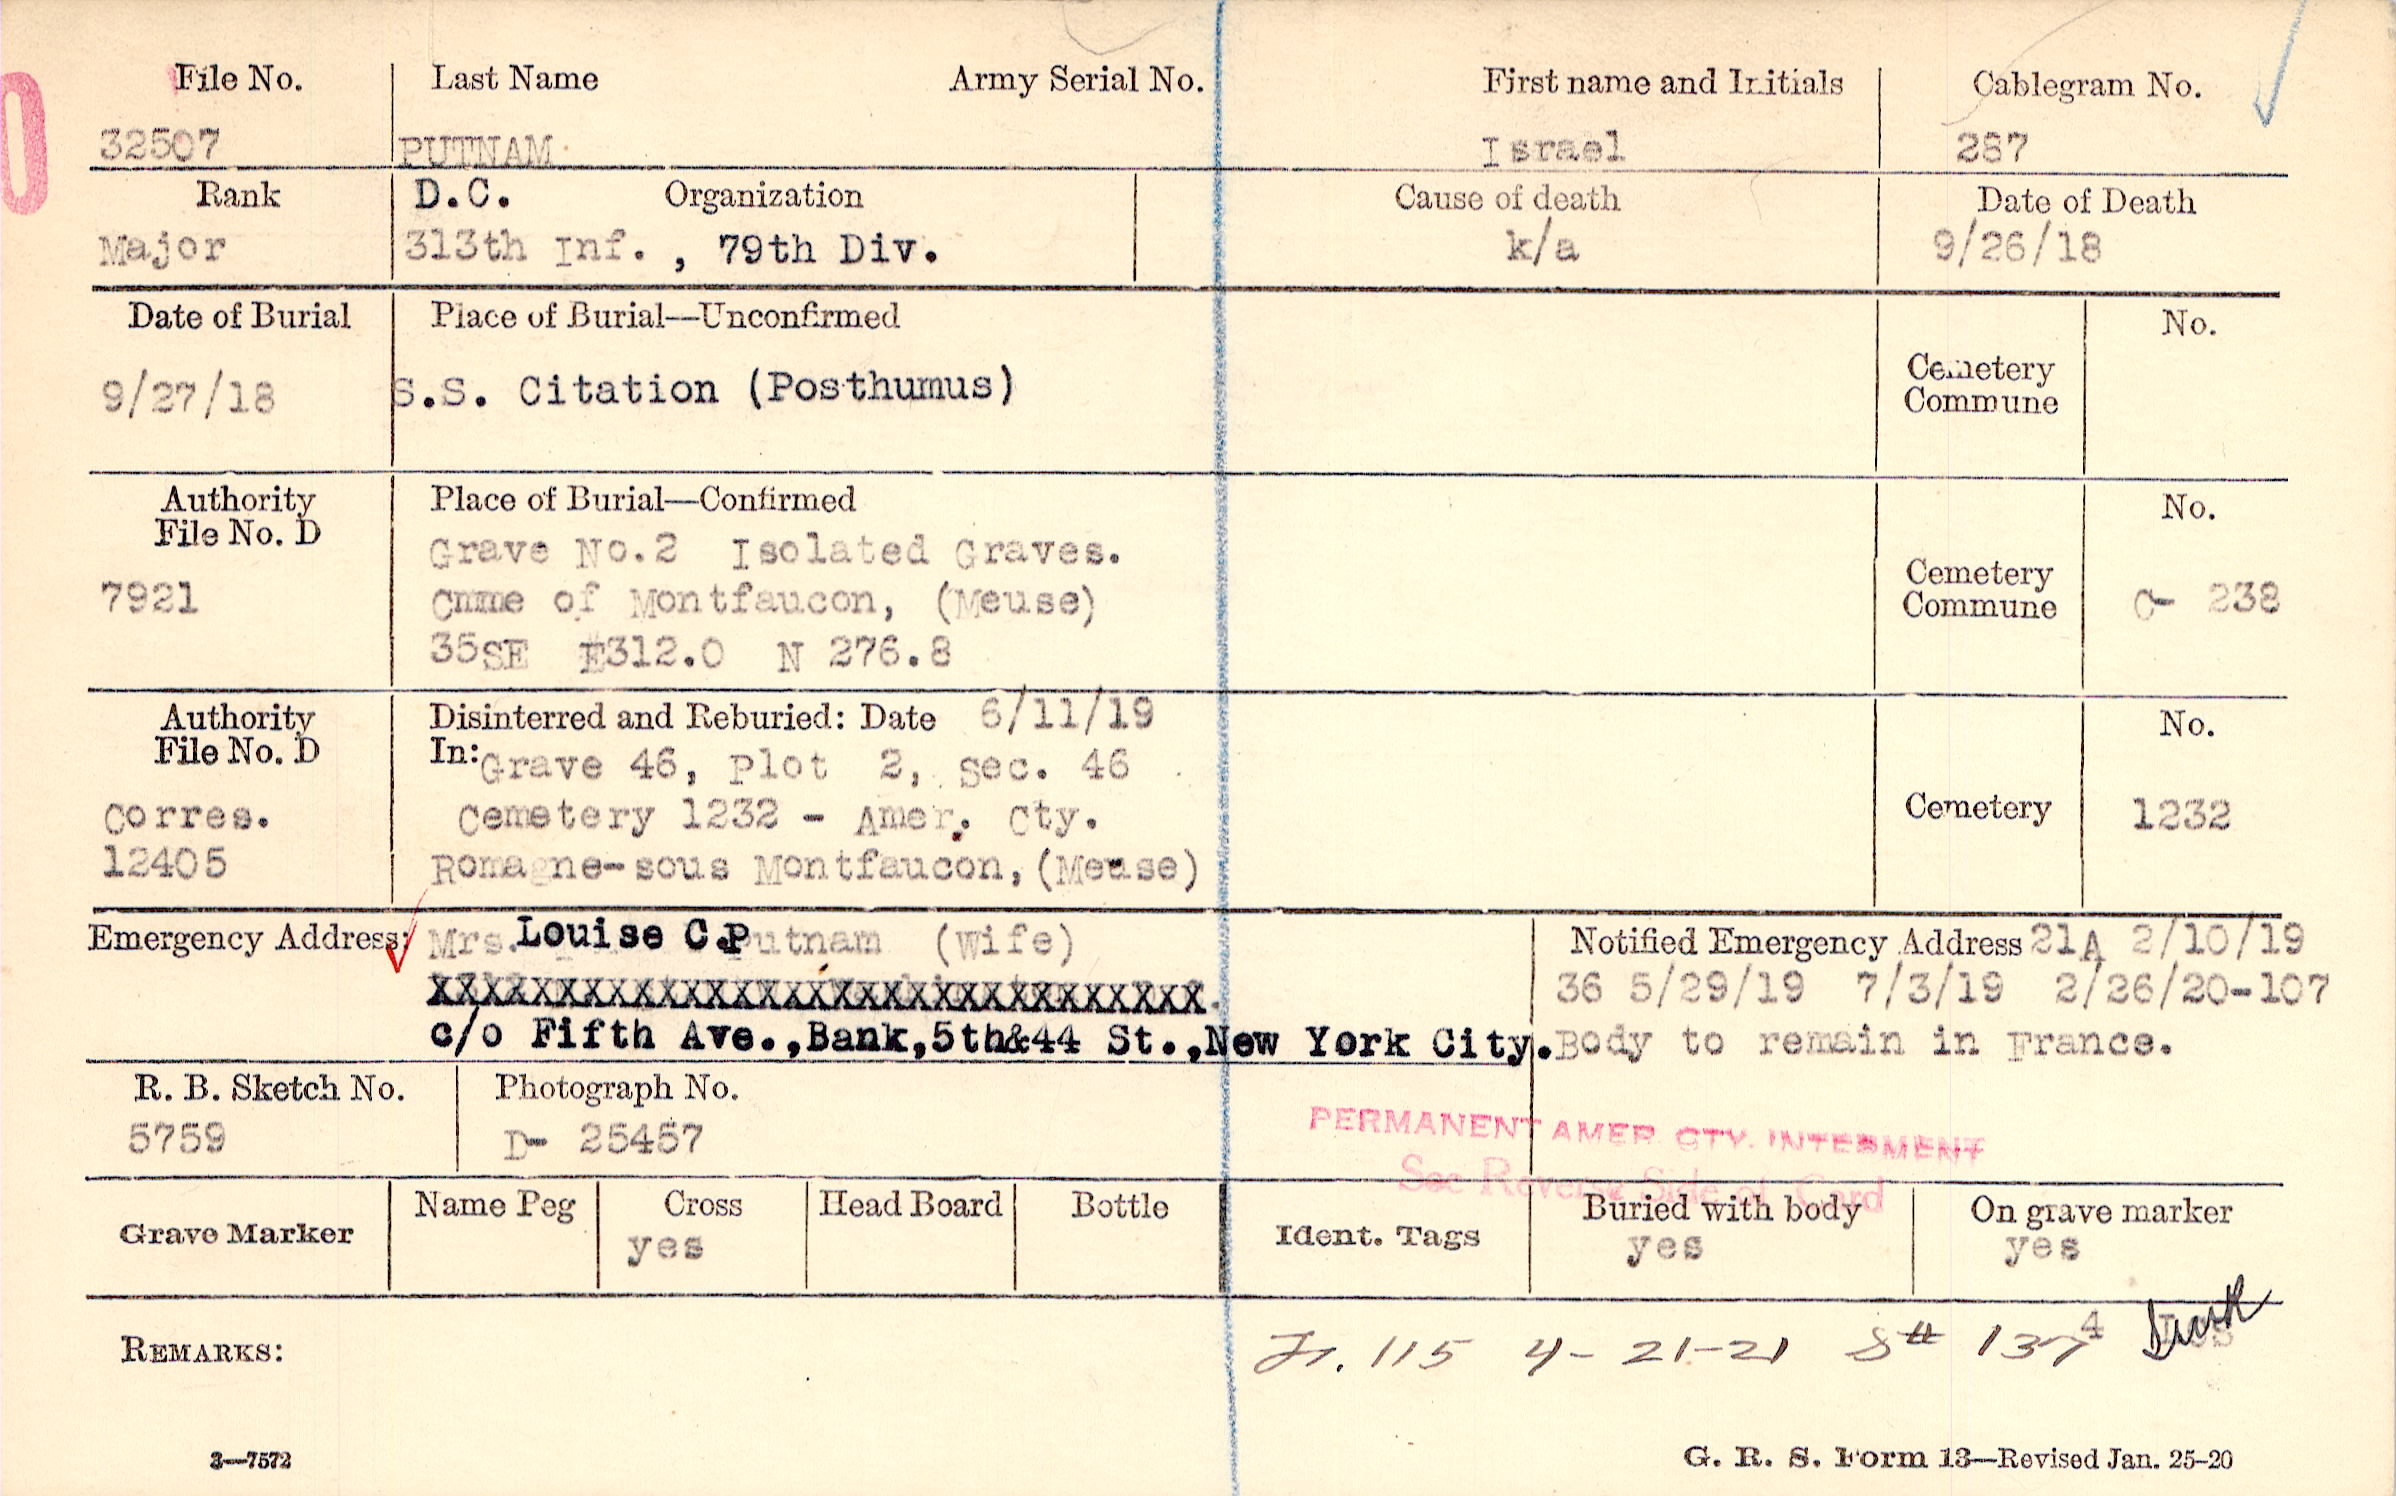 File No. Last Name Army Serial No. First name and Initials Cablegram No.
32507 PUTNAM Israel 287
Rank D.C. Organization Cause of death Date of Death
Major 313th Inf. , 79th Div. k/a 9/26/18
Date of Burial Place of Burial—Unconfirmed No.
9/27/18 S.S. Citation (Posthumus) Cemetery
Commune
Authority Place of Burial—Confirmed No.
File No. D
Grave No.2 Isolated Graves.
7921 Cnme of Montfaucon, (Meuse) Cemetery
Commune C- 238
35SE E312.0 N 276.8
Authority Disinterred and Reburied: Date 6/11/19 No.
File No. D In: Grave 46, Plot 2, Sec. 46
Corres. Cemetery 1232 - Amer. Cty. Cemetery 1232
12405 Romagne-sous Montfaucon,(Meuse)
Emergency Address: Mrs. Louise C.Putnam (Wife) Notified Emergency Address 21A 2/10/19
XXXXXXXXXXXXXXXXXXXXXXXXXXXXXXX 36 5/29/19 7/3/19 2/26/20-107
c/o Fifth Ave.,Bank,5th&44 St.,New York City. Body to remain in France.
R. B. Sketch No. Photograph No.
5759 D- 25457
PERMANENT AMER CTY. INTERMENT
See Reverse Side of Card
Grave Marker Name Peg Cross Head Board Bottle Ident. Tags Buried with body On grave marker
yes yes yes
REMARKS: 115 4-21-21 S# 137 4
3—7572 G. R. S. Form 13—Revised Jan. 25-20